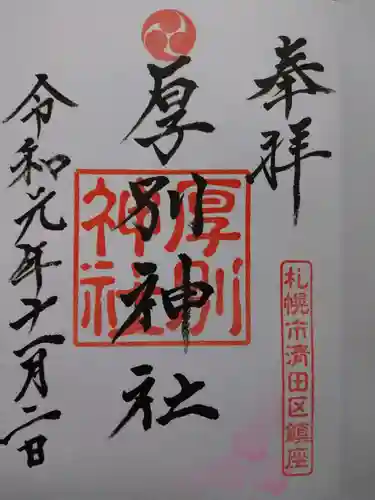 奉拝
札幌市清田区鎮座
厚別神社
厚別
神社
令和元年十一月二日